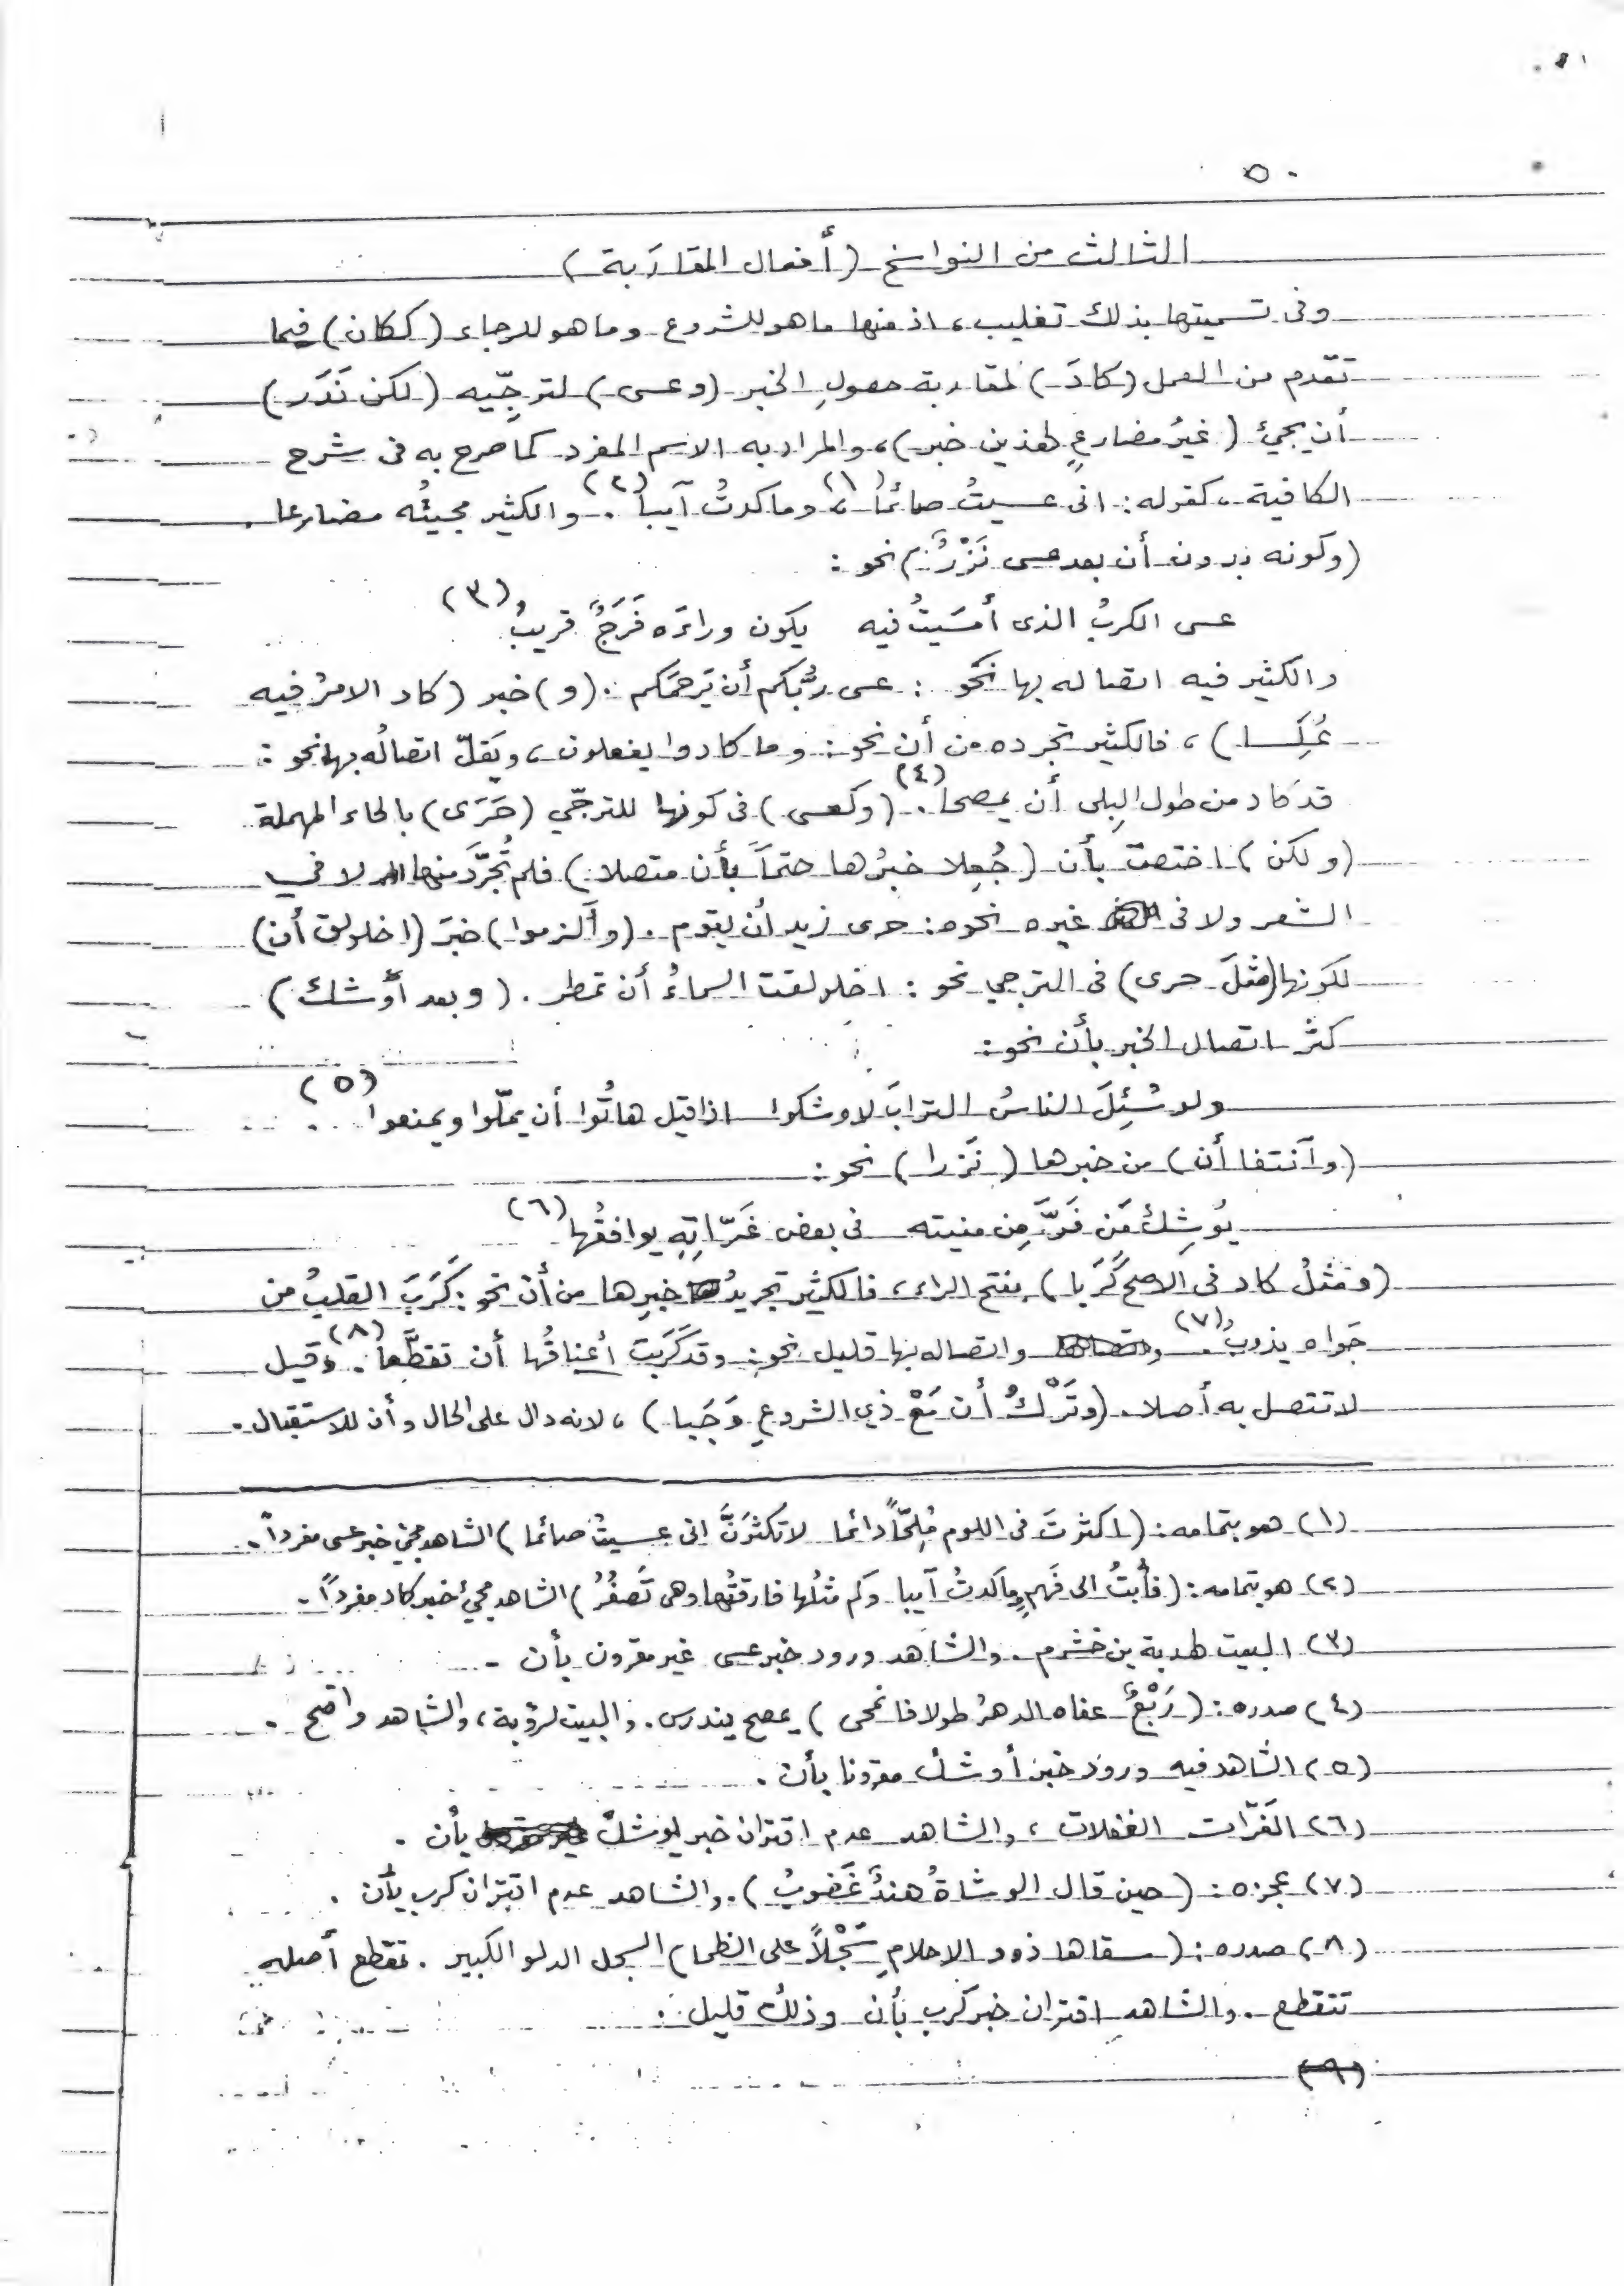 ٥٠
الثالث من النواسخ (أفعال المقارَبة)
وفى تسميتها بذلك تغليب، اذ منها ما هو للشروع وما هو للرجاء (ككان) فيما
تقدّم من العمل (كادَ) لمقاربة حصولِ الخبر (وعسى) لترجّيه (لكن نَدَر)
أن يجيئ (غيرُ مضارعٍ لهذين خبر)، والمراد به الاسم المفرد كما صرح به فى شرح
الكافية، كقوله: انى عسيتُ صائمًا (١)، وما كدتُ آيبا (٢). والكثير مجيئُه مضارعا.
(وكونه بدون أن بعد عسى نَزْرٌ) نحو:
عسى الكربُ الذى أمسَيتُ فيه يكون وراءَه فَرَجٌ قريبُ (٣)
والكثير فيه اتصاله بها نحَو: عسى ربُّكم أن يَرحمَكم. (و) خبر (كاد الامرُ فيه
عُكِسا)، فالكثير تجرده من أن نحو: وما كادوا يفعلون، ويَقلّ اتصالُه بها نحو:
قد كاد من طول البِلى أن يمصحا (٤). (وكعسى) فى كونها للترجّي (حَرَى) بالحاء المهملة
(ولكن) اختصتْ بأن (جُعِلا خبرُها حتماً بأن متصلا) فلم تُجرَّد منها لا في
الشعر ولا فى غيره نحو: حرى زيد أن يقوم. (وألزموا) خبرَ (اخلولق أن)
لكونها (مثلَ حرى) فى الترجي نحو: اخلولقت السماءُ أن تمطر. (وبعد أوشك)
كثر اتصال الخبر بأن نحو:
ولو سُئِلَ الناسُ الترابَ لاوشكوا اذا قيل هاتُوا أن يملّوا ويمنعوا (٥)
(وآنتفا أن) من خبرها (نَزرا) نحو:
يُوشِكُ مَن فَرَّ مِن منيته فى بعض غَرّاتِهِ يوافقُها (٦)
(ومثلُ كاد فى الاصح كَرَبا) بفتح الراء، فالكثير تجريدُ خبرِها من أن نحو: كَرَبَ القلبُ من
جَواه يذوبُ (٧). واتصاله بها قليل نحو: وقد كَرَبت أعناقُها أن تقطَّعا (٨). وقيل
لا تتصل به أصلا. (وتَرْكُ أن مَعْ ذي الشروعِ وَجَبا)، لانه دال على الحال وأن للاستقبال.
(١) هو بتمامه: (اكثرتَ فى اللوم مُلِحّاً دائما لا تُكثرَنَّ انى عسيتُ صائما) الشاهد مجئ خبر عسى مفرداً.
(٢) هو بتمامه: (فأُبتُ الى فَهمٍ وما كدتُ آيبا وكم مثلُها فارقتُها وهى تَصفُرُ) الشاهد مجيُ خبر كاد مفرداً.
(٣) البيت لهدبة بن خشرم. والشاهد ورود خبر عسى غير مقرون بأن.
(٤) صدره: (رَبْعٌ عفاه الدهرُ طولا فانمحى) يمصح يندرس. والبيت لرؤبة، والشاهد واضح.
(٥) الشاهد فيه ورود خبر أوشك مقرونا بأن.
(٦) الغَرّات الغفلات، والشاهد عدم اقتران خبر يوشك بأن.
(٧) عجزه: (حين قال الوشاةُ هندٌ غَضوبُ). والشاهد عدم اقتران كرب بأن.
(٨) صدره: (سقاها ذوو الاحلامِ سَجْلاً على الظما) السجل الدلو الكبير. تقطع أصله
تتقطع. والشاهد اقتران خبر كرب بأن وذلك قليل.
(٩)